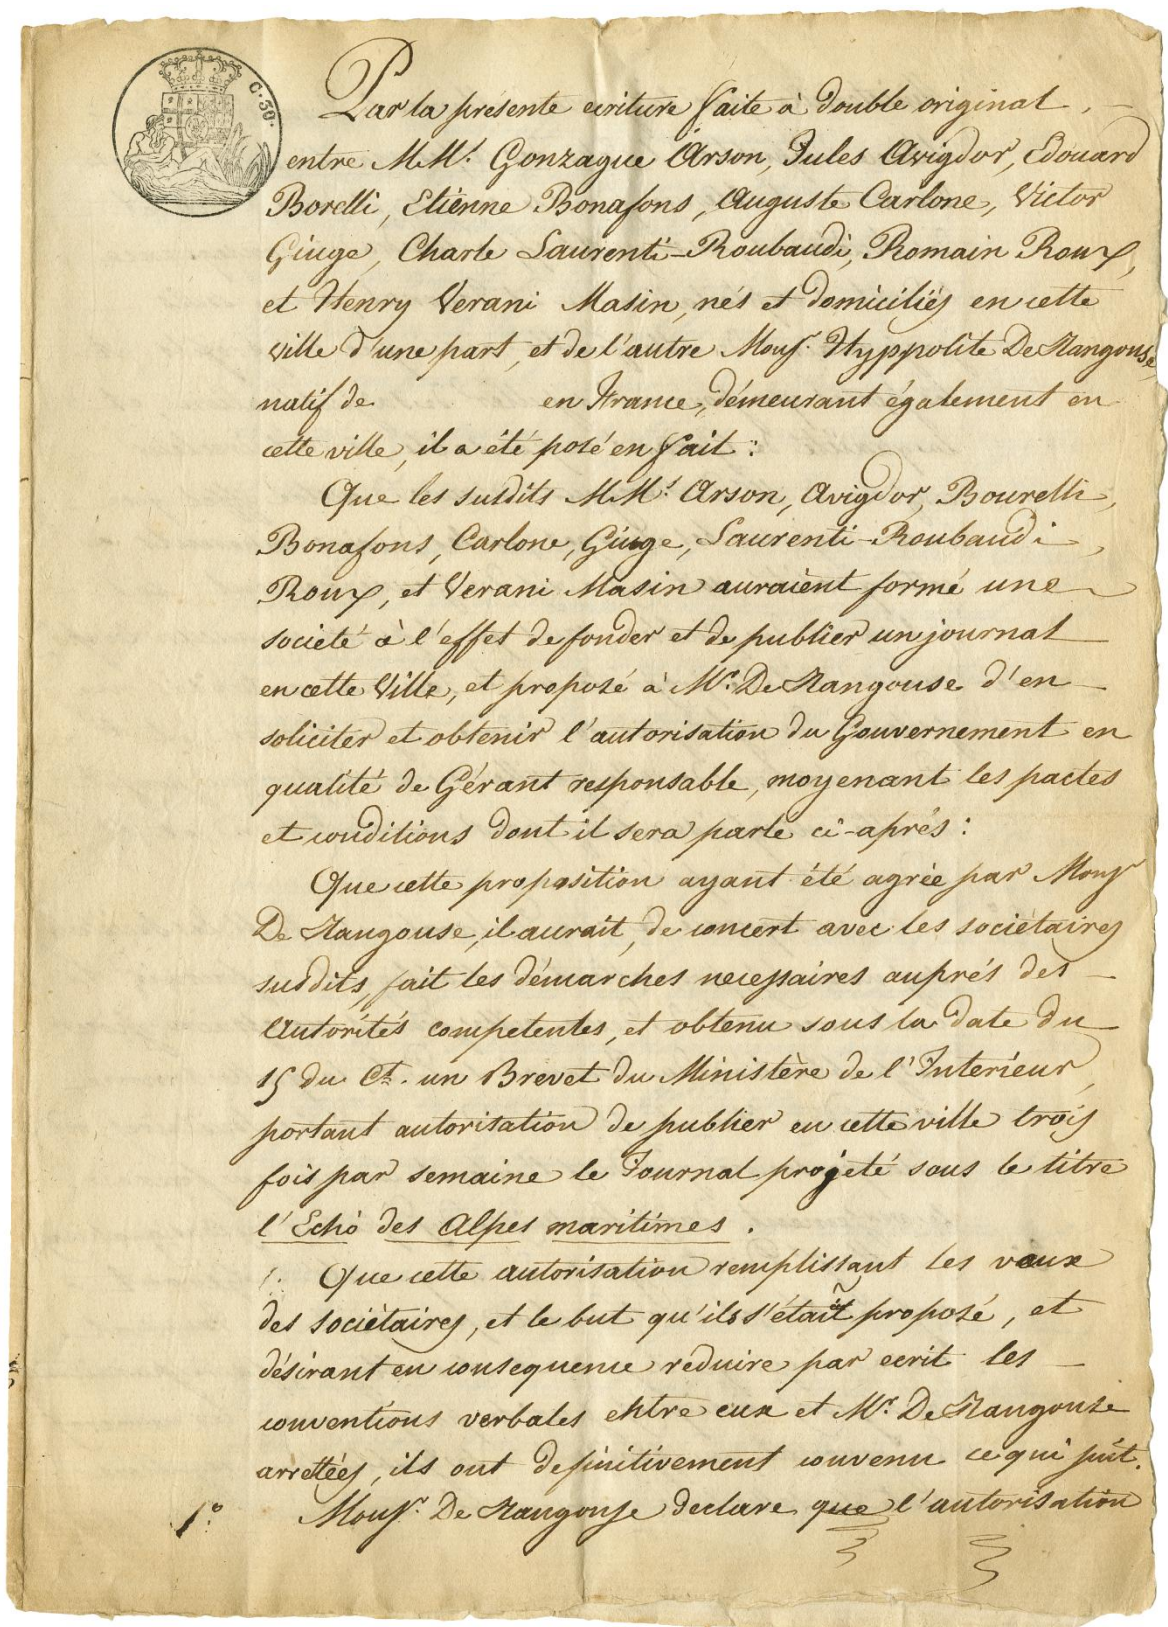 C. 30.
Par la présente ecriture faite à double original,
entre MM.rs Gonzague Arson, Jules Avigdor, Edouard
Borelli, Etiénne Bonafons, Auguste Carlone, Victor
Giuge, Charle Laurenti-Roubaudi, Romain Roux,
et Henry Verani Masin, nés et domiciliés en cette
ville d'une part, et de l'autre Monsr. Hyppolite De Nangouse,
natif de en France, démeurant également en
cette ville, il a été posé en fait:
Que les susdits MM.rs Arson, Avigdor, Bourelli,
Bonafons, Carlone, Giuge, Laurenti-Roubaudi,
Roux, et Verani Masin auraient formé une
societé à l'effet de fonder et de publier un journal
en cette Ville, et proposé à Mr. De Nangouse d'en
soliciter et obtenir l'autorisation du Gouvernement en
qualité de Gérant responsable, moyenant les pactes
et conditions dont il sera parlé ci-aprés:
Que cette proposition ayant été agrée par Monsr
De Nangouse, il aurait, de concert avec les sociétaires
susdits, fait les démarches necessaires auprés des
Autorités competentes, et obtenu sous la date du
15 du Ct. un Brevet du Ministère de l'Interieur,
portant autorisation de publier en cette ville trois
fois par semaine le Journal projeté sous le titre
l'Echo des Alpes maritimes.
Que cette autorisation remplissant les vœux
des sociétaires, et le but qu'ils s'étaient proposé, et
désirant en consequence reduire par ecrit les
conventions verbales entre eux et Mr. De Nangouse
arrettées, ils ont definitivement convenu ce qui suit.
1.° Monsr. De Nangouse declare que l'autorisation